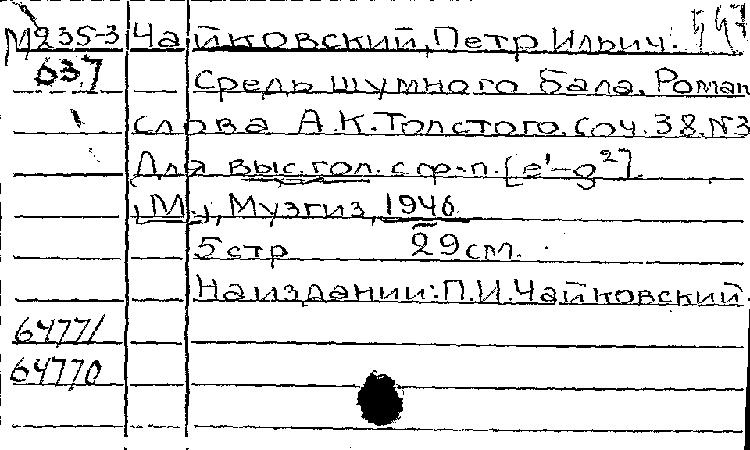 М235-3 Чайковский, Петр Ильич. 547
637 Средь шумного бала. Роман
слова А.К.Толстого. Соч.38.N3
Для выс.гол. с ф-п. [e¹-g²].
[М.], Музгиз, 1946.
5 стр 29 см.
На издании: П.И.Чайковский.
64771
64770